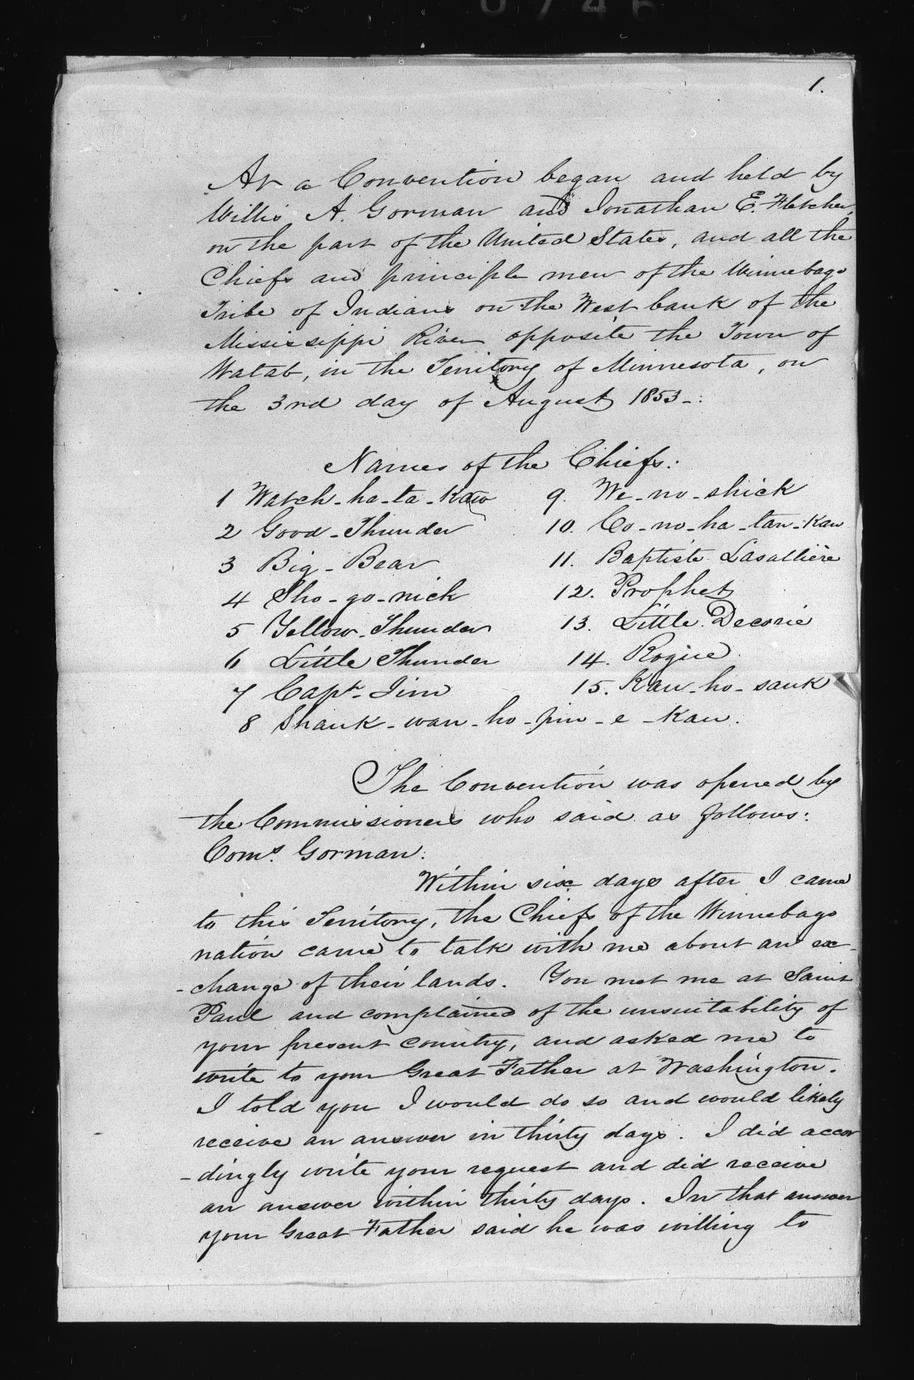 1.
At a Convention began and held by
Willis A. Gorman and Jonathan E. Fletcher,
on the part of the United States, and all the
Chiefs and principle men of the Winnebago
Tribe of Indians on the West bank of the
Mississippi River opposite the Town of
Watab, in the Territory of Minnesota, on
the 3rd day of August 1853-:
Names of the Chiefs:
1 Watch-ha-ta-kaw
2 Good-Thunder
3 Big-Bear
4 Sho-go-nick
5 Yellow-Thunder
6 Little Thunder
7 Capt. Jim
8 Shauk-wan-ho-pin-e-kau.
9. We-no-shick
10. Co-no-ha-tan-kau
11. Baptiste Lasalliere
12. Prophet
13. Little Decorie
14. Rogue
15. Kau-ho-sauk
The Convention was opened by
the Commissioners who said as follows:
Coms. Gorman:
Within six days after I came
to this Territory, the Chiefs of the Winnebago
nation came to talk with me about an ex-
-change of their lands. You met me at Saint
Paul and complained of the unsuitability of
your present country, and asked me to
write to your Great Father at Washington.
I told you I would do so and would likely
receive an answer in thirty days. I did accor
-dingly write your request and did receive
an answer within thirty days. In that answer
your Great Father said he was willing to